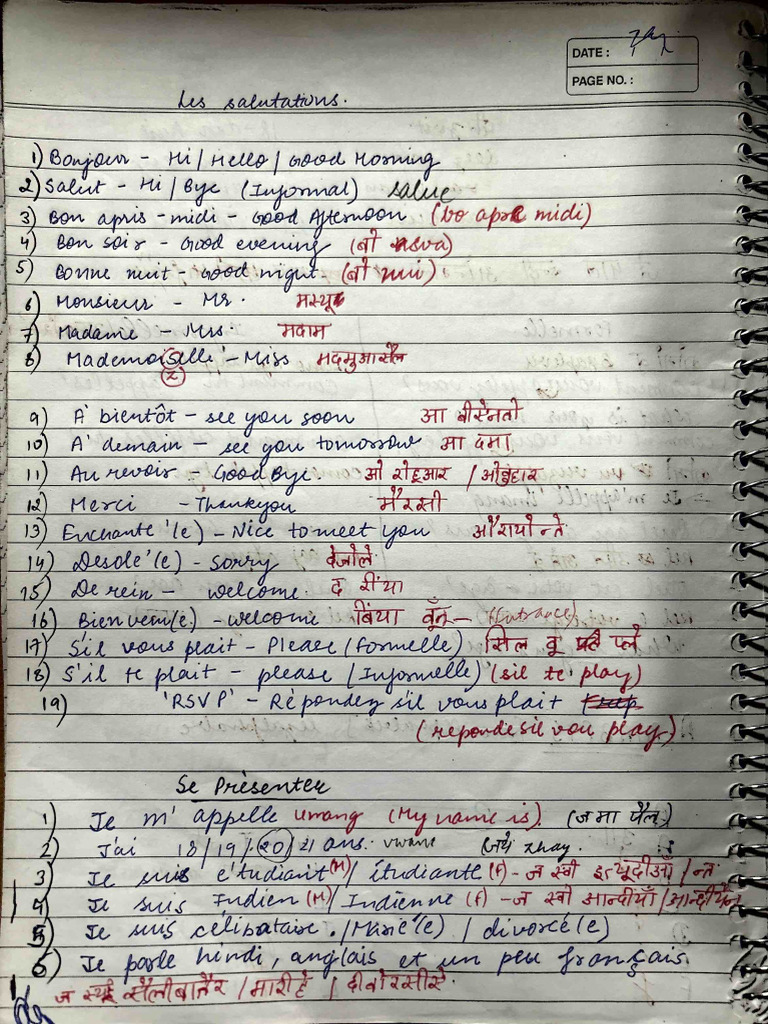 DATE :
PAGE NO. :
Les salutations.
1) Bonjour - Hi / Hello / Good Morning
2) Salut - Hi / Bye (Informal) salue
3) Bon apris - midi - Good Afternoon (bo apre midi)
4) Bon soir - Good evening (बो swa)
5) Bonne nuit - Good night (बो nui)
6) Monsieur - Mr. मस्यू
7) Madame - Mrs. मदाम
8) Mademoiselle - Miss मदमुआसैल
(z)
9) A' bientôt - see you soon आ बीएनतो
10) A' demain - see you tomorrow आ दमा
11) Au revoir - Good Bye.
12) Merci - Thankyou मैरसी
13) Enchante'(e) - Nice to meet you
14) Desole'(e) - sorry देजोले
15) De rein - welcome. द रींया
16) Bienvenu(e) - welcome बिंया वूँन - (Entrance)
17) S'il vous plait - Please (formelle) सिल वू प्ले
18) S'il te plait - please / Informelle) (sil te play)
19) 'RSVP' - Répondez s'il vous plait
(reponde sil vou play)
Se Présenter
1) Je m'appelle umang (My name is). (ज मा पैल)
2) J'ai 18/19/20/21 ans.
3) Je suis e'tudiant (M) / étudiante (F) - ज स्वी
4) Je suis Indien (M) / Indienne (F) - ज स्वी आन्दीयाँ / आन्दीयैन
5) Je suis célibataire. / Marié'(e) / divorcé(e)
6) Je parle hindi, anglais et un peu français
ज स्यूई सैलीबातैर / मारीहे / दीवोरसीसे.